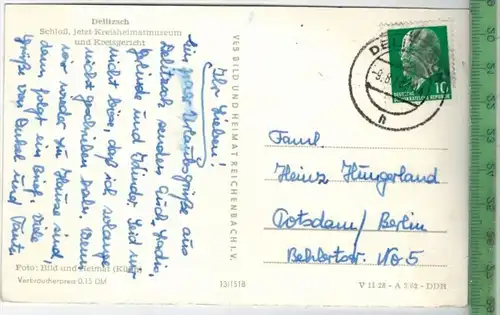 Delitzsch
Schloß, jetzt Kreisheimatmuseum
und Kreisgericht
Ihr Lieben!
Ein paar Urlaubsgrüße aus
Delitzsch senden Euch
und Kinder. Seid mir
nicht böse, daß ich solange
nicht geschrieben habe. Wenn
wir wieder zu Hause sind,
dann folgt ein Brief. Viele
Grüße von Onkel und Tante
Foto: Bild und Heimat
Verbraucherpreis 0,15 DM
VEB BILD UND HEIMAT REICHENBACH I. V.
13/1518
10
DEUTSCHE
DEMOKRATISCHE REPUBLIK
h
Faml.
Heinz Hungerland
Potsdam / Berlin
Behlertstr. No 5
V 11 28 - A 3/62 - DDR